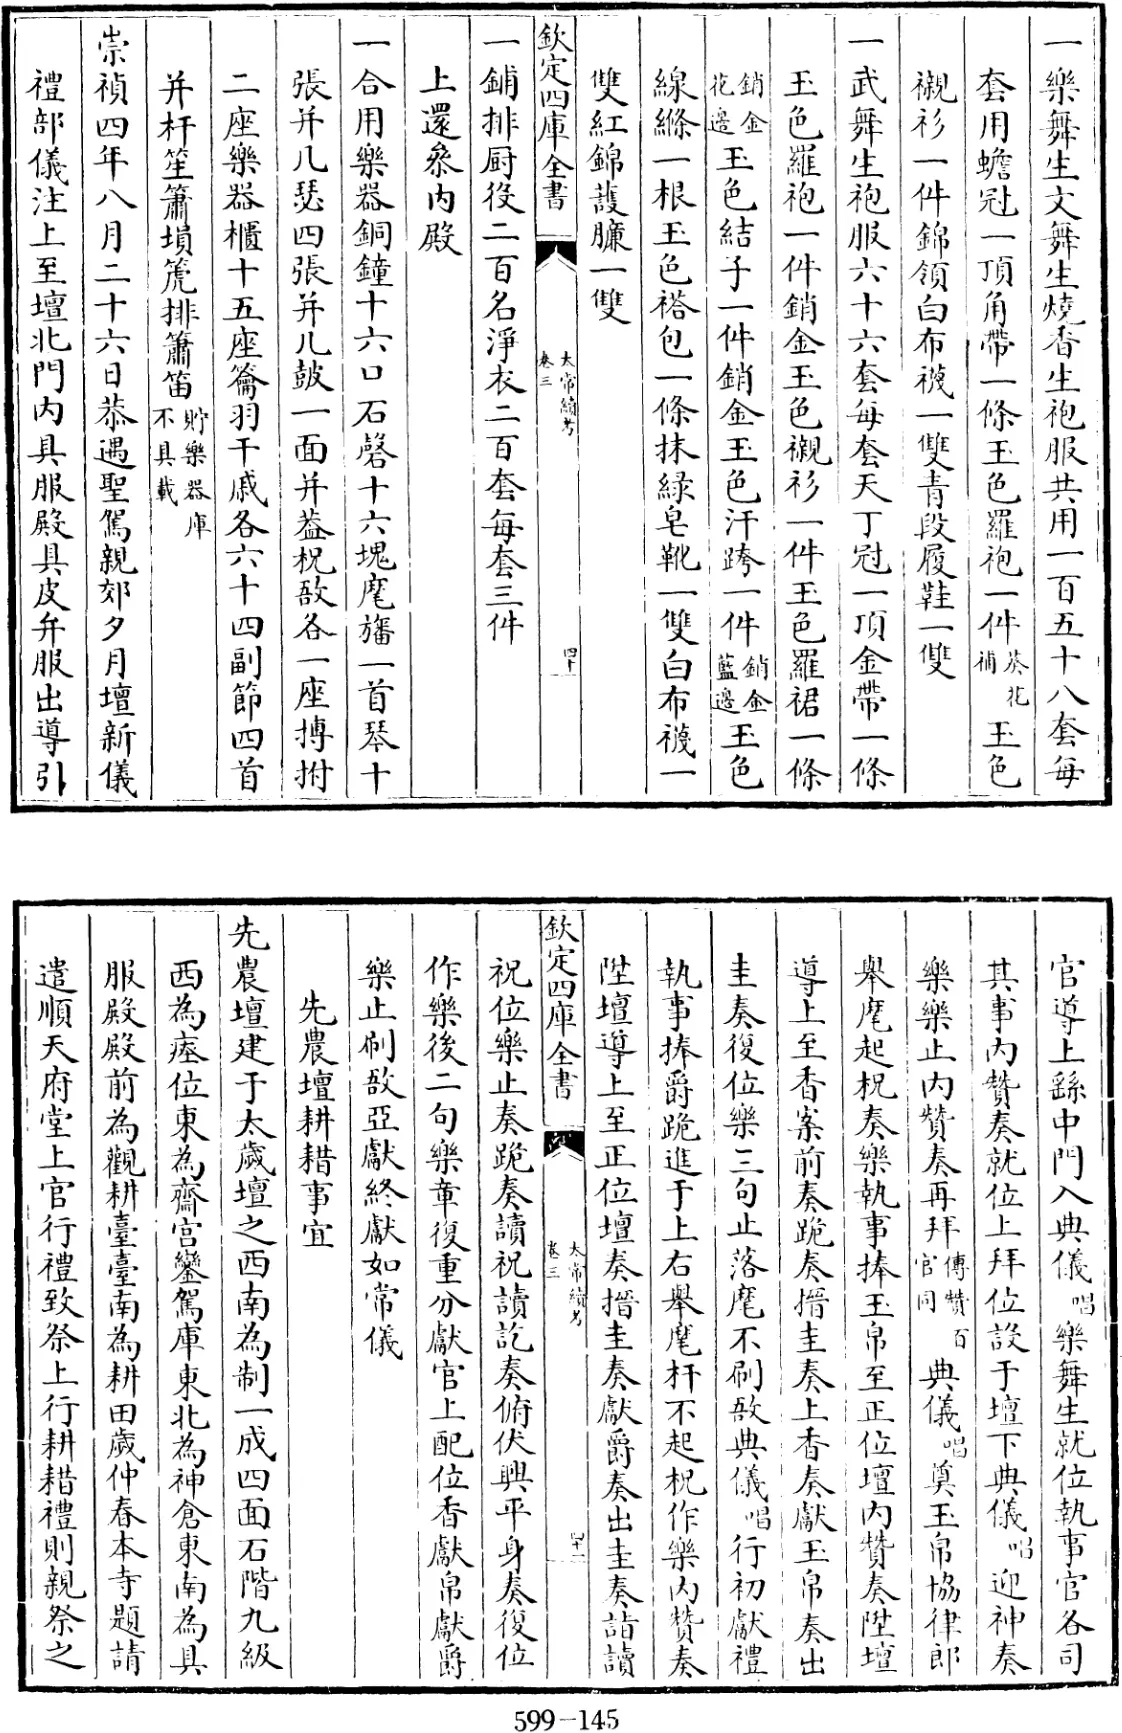 一樂舞生文舞生燒香生袍服共用一百五十八套每
套用蟾冠一頂角帶一條玉色羅袍一件葵花補玉色
襯衫一件錦領白布襪一雙青段履鞋一雙
一武舞生袍服六十六套每套天丁冠一頂金帶一條
玉色羅袍一件銷金玉色襯衫一件玉色羅裙一條
銷金花邊玉色結子一件銷金玉色汗跨一件銷金藍邊玉色
線縧一根玉色褡包一條抹緑皂靴一雙白布襪一
雙紅錦䕶臁一雙
欽定四庫全書
太常續考
卷三
四十
一鋪排厨役二百名淨衣二百套每套三件
上還叅内殿
一合用樂器銅鐘十六口石磬十六塊麾旛一首琴十
張并几瑟四張并几鼓一面并葢柷敔各一座搏拊
二座樂器櫃十五座籥羽干戚各六十四副節四首
并杆笙簫塤篪排簫笛貯樂器庫不具載
崇禎四年八月二十六日恭遇聖駕親郊夕月壇新儀
禮部儀注上至壇北門内具服殿具皮弁服出導引
官導上䌛中門入典儀唱樂舞生就位執事官各司
其事内贊奏就位上拜位設于壇下典儀唱迎神奏
樂樂止内贊奏再拜傳贊百官同典儀唱奠玉帛協律郎
舉麾起柷奏樂執事捧玉帛至正位壇内贊奏陞壇
導上至香案前奏跪奏搢圭奏上香奏獻玉帛奏出
圭奏復位樂三句止落麾不刷敔典儀唱行初獻禮
執事捧爵跪進于上右舉麾杆不起柷作樂内贊奏
陞壇導上至正位壇奏搢圭奏獻爵奏出圭奏詣讀
欽定四庫全書
太常續考
卷三
四十一
祝位樂止奏跪奏讀祝讀訖奏俯伏興平身奏復位
作樂後二句樂章復重分獻官上配位香獻帛獻爵
樂止刷敔亞獻終獻如常儀
先農壇耕耤事宜
先農壇建于太歲壇之西南為制一成四面石階九級
西為瘞位東為齋宫鑾駕庫東北為神倉東南為具
服殿殿前為觀耕臺臺南為耕田歲仲春本寺題請
遣順天府堂上官行禮致祭上行耕耤禮則親祭之
599-145